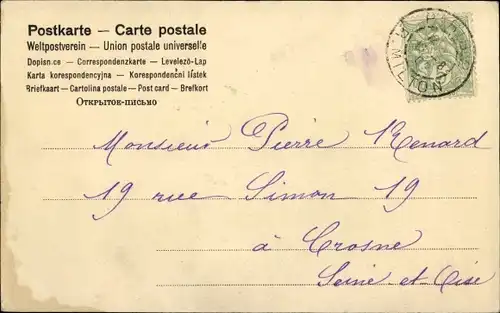 Postkarte — Carte postale
Weltpostverein — Union postale universelle
Dopisn.ce — Correspondenzkarte — Levelező-Lap
Karta korespondencyjna — Korespondenčni listek
Briefkaart — Cartolina postale — Post card — Brefkort
Открытое-письмо
Monsieur Pierre Renard
19 rue Simon 19
à Crosne
Seine et Oise